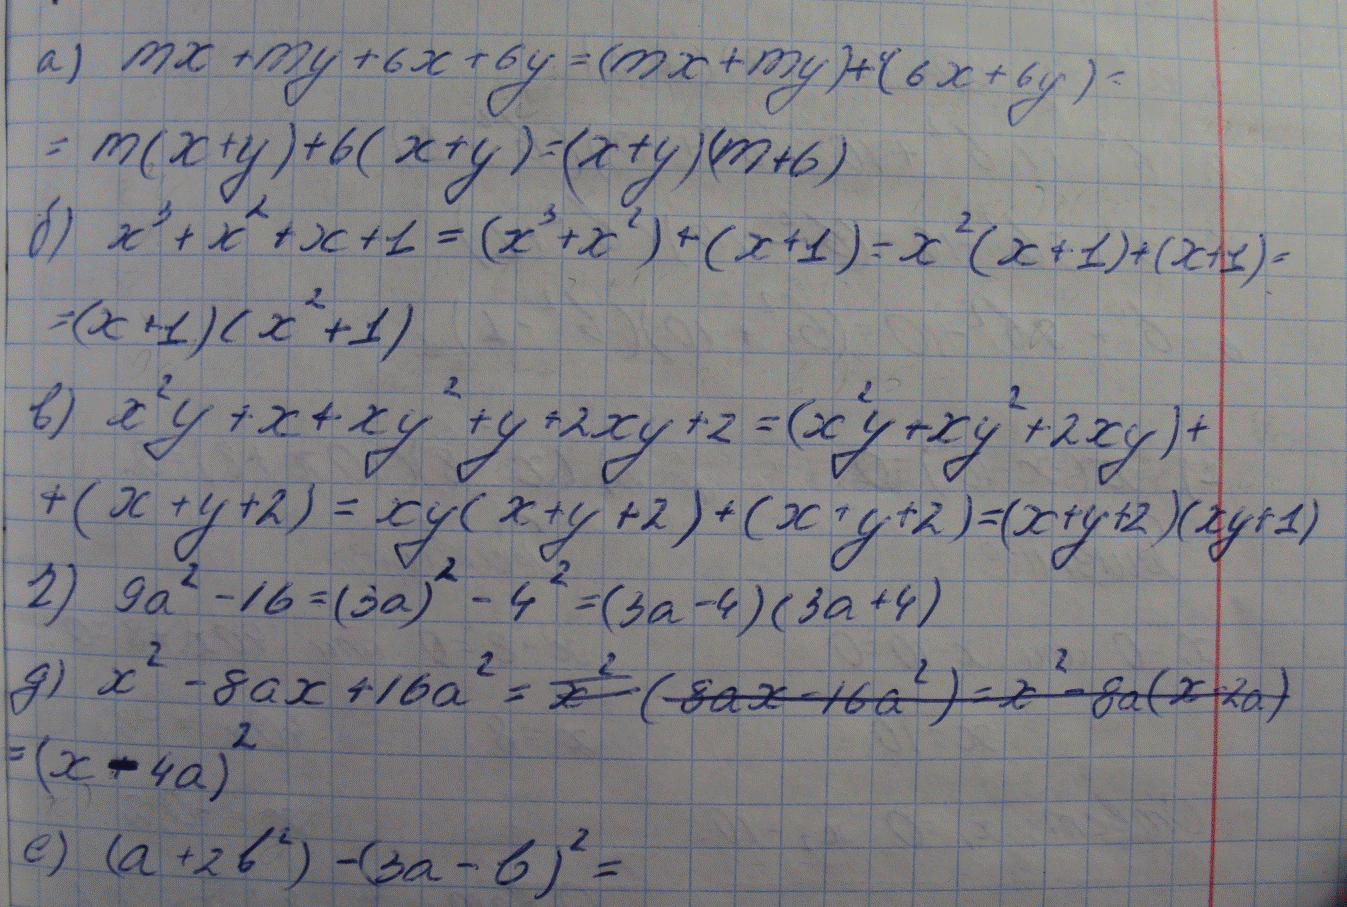 а) mx + my + 6x + 6y = (mx + my) + (6x + 6y) =
= m(x+y) + 6(x+y) = (x+y)(m+6)
б) x³ + x² + x + 1 = (x³ + x²) + (x+1) = x²(x+1) + (x+1) =
= (x+1)(x²+1)
в) x²y + x + xy² + y + 2xy + 2 = (x²y + xy² + 2xy) +
+ (x + y + 2) = xy(x+y+2) + (x+y+2) = (x+y+2)(xy+1)
г) 9a² - 16 = (3a)² - 4² = (3a-4)(3a+4)
д) x² - 8ax + 16a² = x² (8ax - 16a²) = x² - 8a(x-2a)
= (x - 4a)²
е) (a + 2b²) - (3a - b)² =